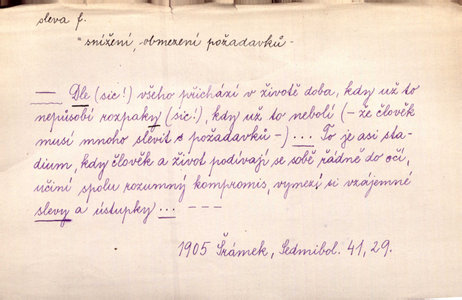 sleva f.
"snížení, obmezení požadavků -
— Dle (sic!) všeho přichází v životě doba, kdy už to
nepůsobí rozpaky (sic!), kdy už to nebolí (– že člověk
musí mnoho slevit s požadavků –) ... To je asi sta-
dium, kdy člověk a život podívají se sobě řádně do očí,
učiní spolu rozumný kompromis, vymezí si vzájemné
slevy a ústupky ... – – –
1905 Šrámek, Sedmibol. 41, 29.